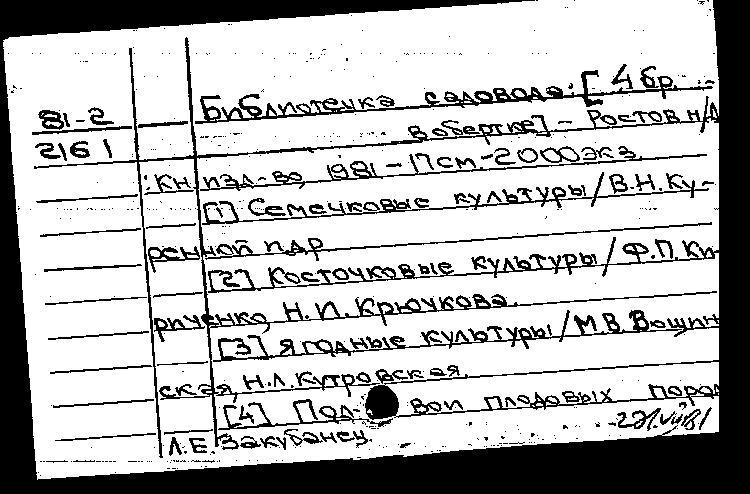 81-2
2161
Библиотечка садовода: [4 бр.
в обертке] - Ростов н/Д
: Кн. изд-во, 1981 - 17 см. - 2000 экз.
[1] Семечковые культуры / В.Н. Ку-
ренной и др
[2] Косточковые культуры / Ф.П. Ки-
риченко, Н.И. Крючкова.
[3] Ягодные культуры / М.В. Вощин-
ская, Н.Л. Кутровская.
[4] Под- вои плодовых пород
Л.Е. Закубанец